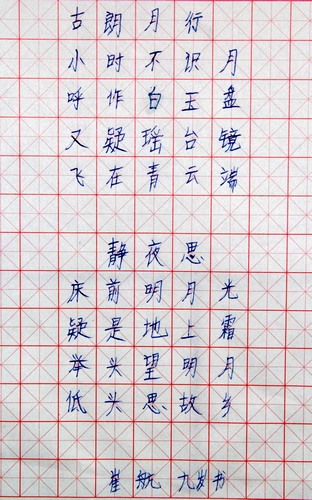 古朗月行
小时不识月
呼作白玉盘
又疑瑶台镜
飞在青云端
静夜思
床前明月光
疑是地上霜
举头望明月
低头思故乡
崔航 九岁书